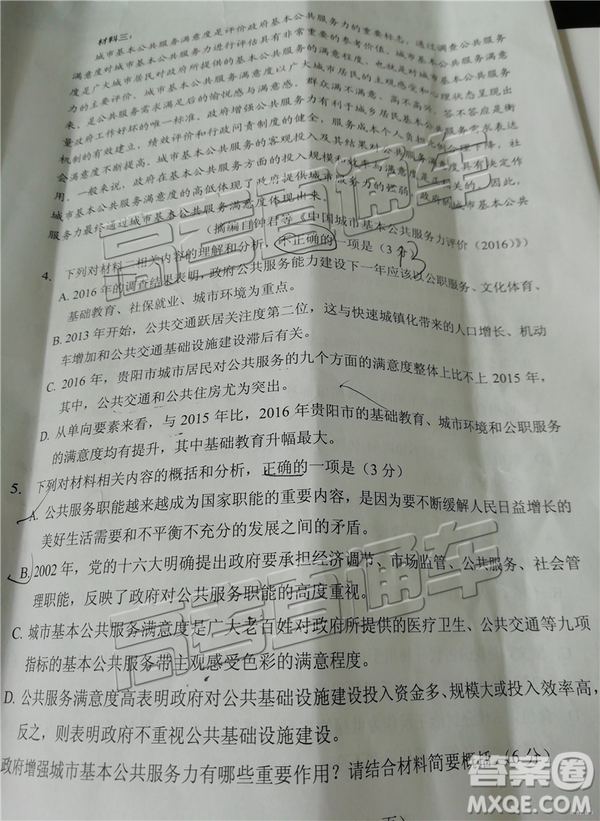 材料三：
城市基本公共服务满意度是评价政府基本公共服务力的重要标志，通过调查公共服务
满意度对城市基本公共服务力进行评估具有非常重要的参考价值。城市基本公共服务满意
度是广大城市居民对政府所提供的基本公共服务的满意程度，也就是对城市基本公共服务
力的主要评价。城市基本公共服务满意度以广大城市居民的主观感受和心理状态呈现出
来，是公共服务需求满足后的愉悦感与满意感。群众满不满意、高不高兴、答不答应是衡
量政府工作好坏的唯一标准。政府增强公共服务力有利于城乡居民基本公共服务需求表达
机制的有效建立、绩效评价和行政问责制度的健全、服务成本个人负担比例合理下降、社
会满意度不断提高。城市基本公共服务的客观投入及其结果对公共服务满意度具有决定作
用。一般来说，政府在基本公共服务方面的投入规模和效率与满意度是
城市基本公共服务满意度的高低体现了政府提供城市服务力的强弱，政府的城市基本公共
服务力最终通过城市基本公共服务满意度体现出来。
（摘编自钟君等《中国城市基本公共服务力评价（2016）》）
4. 下列对材料二相关内容的理解和分析，不正确的一项是（3分）
A. 2016年的调查结果表明，政府公共服务能力建设下一年应该以公职服务、文化体育、
基础教育、社保就业、城市环境为重点。
B. 2013年开始，公共交通跃居关注度第二位，这与快速城镇化带来的人口增长、机动
车增加和公共交通基础设施建设滞后有关。
C. 2016年，贵阳市城市居民对公共服务的九个方面的满意度整体上比不上2015年，
其中，公共交通和公共住房尤为突出。
D. 从单向要素来看，与2015年比，2016年贵阳市的基础教育、城市环境和公职服务
的满意度均有提升，其中基础教育升幅最大。
5. 下列对材料相关内容的概括和分析，正确的一项是（3分）
A. 公共服务职能越来越成为国家职能的重要内容，是因为要不断缓解人民日益增长的
美好生活需要和不平衡不充分的发展之间的矛盾。
B. 2002年，党的十六大明确提出政府要承担经济调节、市场监管、公共服务、社会管
理职能，反映了政府对公共服务职能的高度重视。
C. 城市基本公共服务满意度是广大老百姓对政府所提供的医疗卫生、公共交通等九项
指标的基本公共服务带主观感受色彩的满意程度。
D. 公共服务满意度高表明政府对公共基础设施建设投入资金多、规模大或投入效率高，
反之，则表明政府不重视公共基础设施建设。
政府增强城市基本公共服务力有哪些重要作用？请结合材料简要概括（6分）
高考直通车
高考直通车
高考直通车
答案圈
MXQE.COM